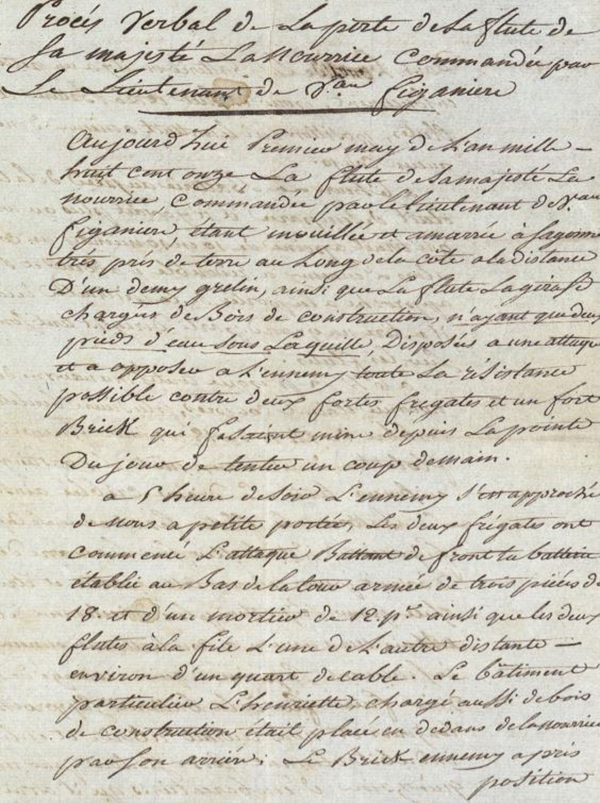 Procés verbal de La perte de la flute de
Sa majesté La Nourrice Commandée par
Le Lieutenant de Vau Figaniere
Aujourd'hui Premier may de L'an mille
huit cent onze La flute de sa majesté La
nourrice, Commandée par le Lieutenant de Vau
figaniere, étant mouillée et amarrée à Sagonne
trés prés de terre au Long de la côte a la distance
D'un demy grelin, ainsi que La flute La girafe
chargés de Bois de construction, n'ayant que deux
pieds d'eau sous La quille, Disposées a une attaque
et a opposer a L'ennemy toute La résistance
possible contre deux fortes frégates et un fort
Brick qui fasaient mine depuis La pointe
Du jour de tenter un coup de main.
a 5 heure de Soir L'ennemy s'est approché
de nous a petite portée, Les deux frégates ont
commencé L'attaque Battant de front la batterie
établie au Bas de la tour armée de trois piéces de
18. et d'un mortier de 12.pes ainsi que les deux
flutes à la file L'une de L'autre distante
environ d'un quart de cable. Le bâtiment
particulier L'henriette, chargé aussi de bois
de construction était placé en dedans de la nourrice
par son arriére; Le Brick ennemy a pris
position